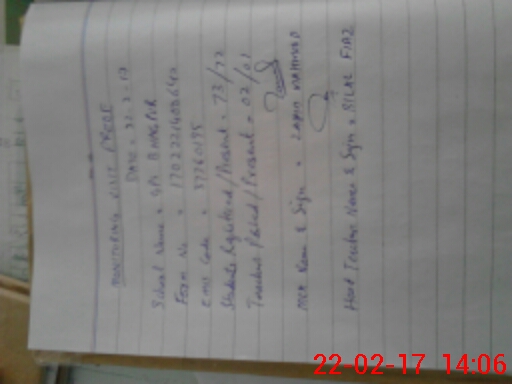 MONITORING VISIT PROOF
DATE = 22-2-17
School Name = GPS
Form No =
EMIS Code = 37260195
Students Registered/Present = 73/72
Teachers Posted/Present = 02/01
MEA Name & Sign =
Head Teacher Name & Sign = BILAL FIAZ
22-02-17 14:06